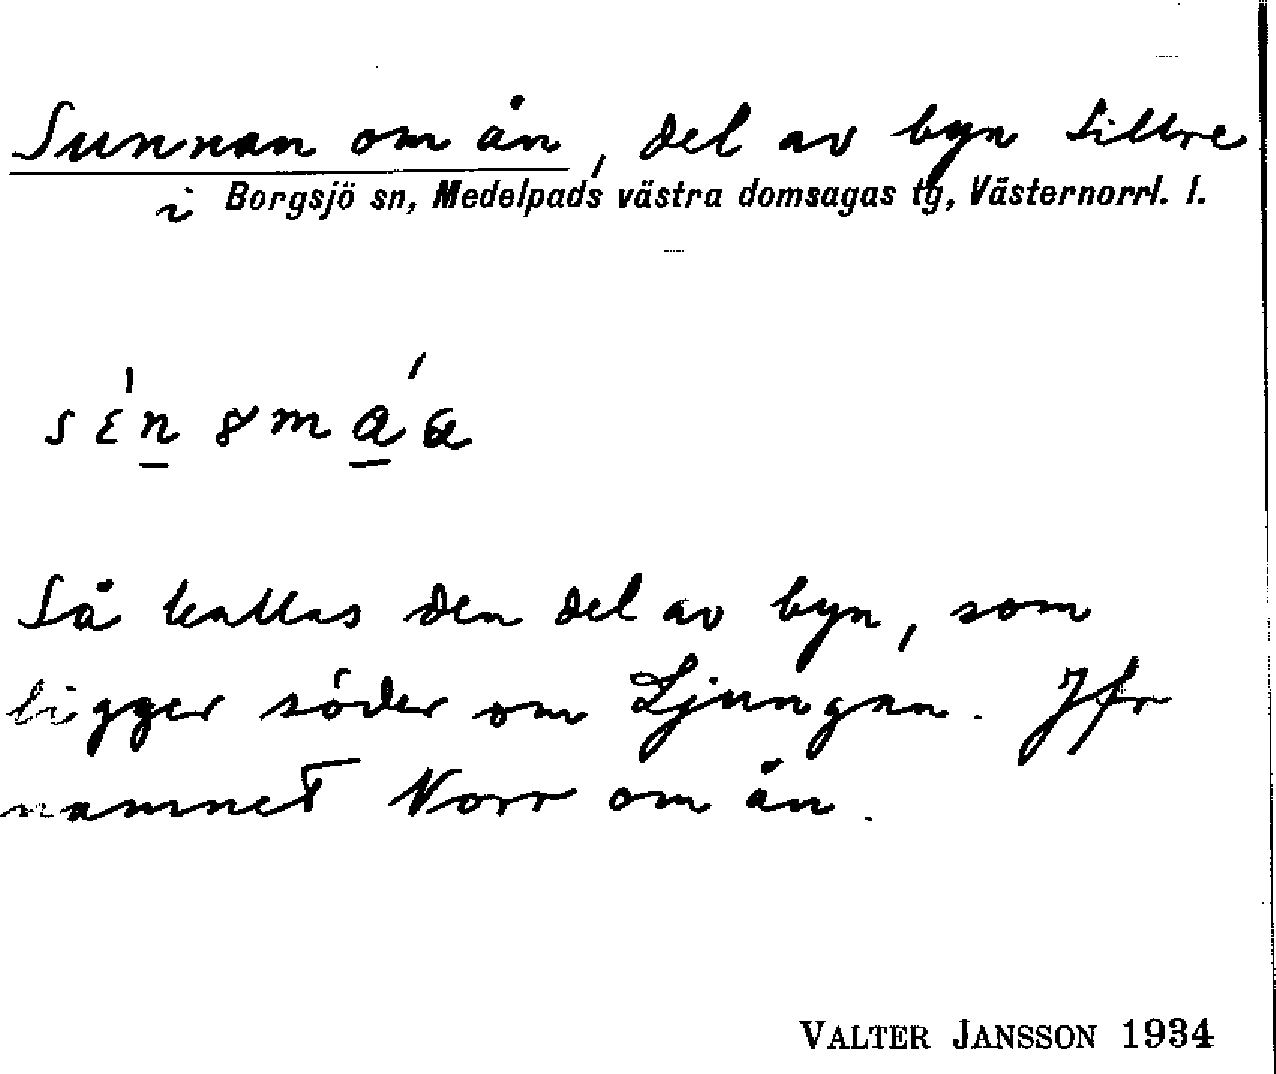 Sunnan om ån, del av byn Sillre
i Borgsjö sn, Medelpads västra domsagas tg, Västernorrl. l.
Så kallas den del av byn, som
ligger söder om Ljungan. Jfr
namnet Norr om ån.
VALTER JANSSON 1934